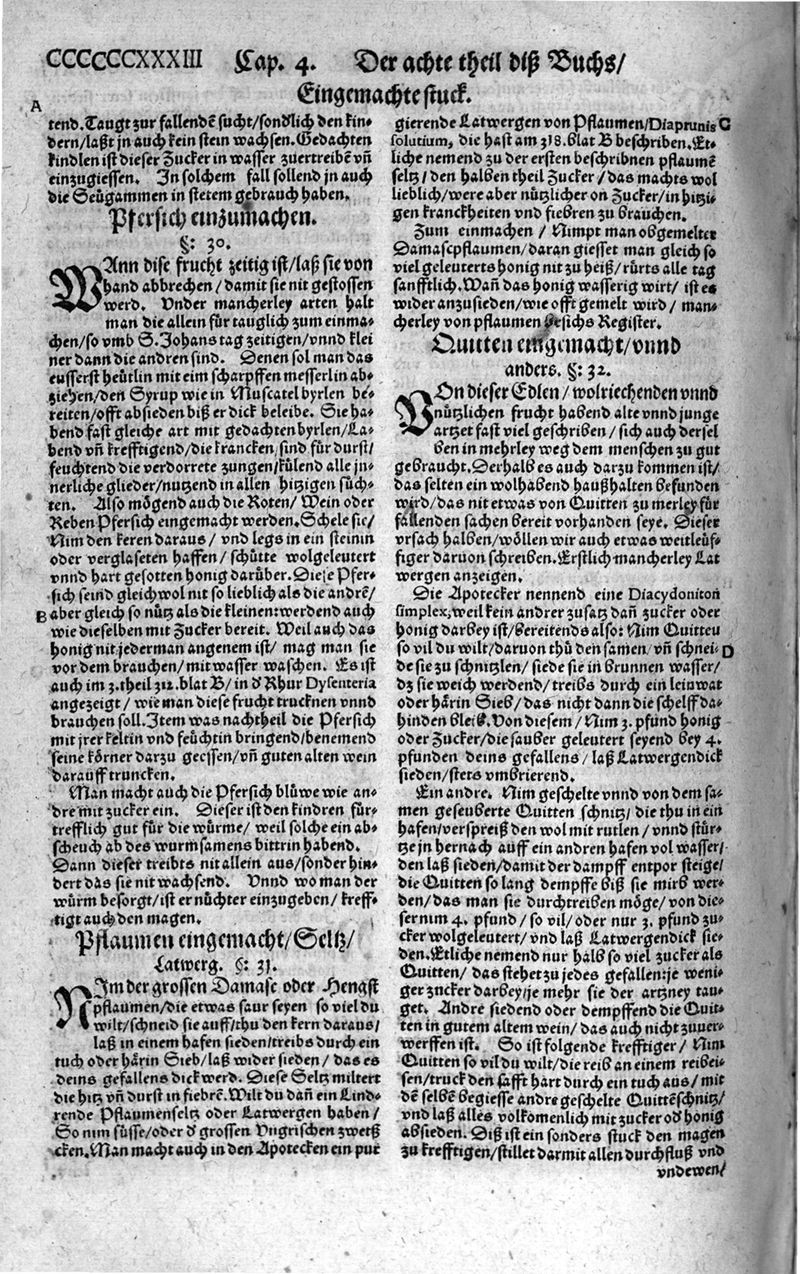 CCCCCCXXXIII Cap. 4. Der achte theil diß Buchs/
Eingemachte stuck.
A
tend. Taugt zur fallendē sucht/sondlich den kin-
dern/laßt jn auch kein stein wachsen. Gedachten
kindlen ist dieser Zucker in wasser zuertreibē vñ
einzugiessen. In solchem fall sollend jn auch
die Seügammen in stetem gebrauch haben.
Pfersich einzumachen.
§: 30.
WAnn dise frucht zeitig ist/laß sie von
hand abbrechen/damit sie nit gestossen
werd. Vnder mancherley arten halt
man die allein für tauglich zum einma-
chen/so vmb S. Johans tag zeitigen/vnnd klei
ner dann die andren sind. Denen sol man das
eusserst heütlin mit eim scharpffen messerlin ab-
ziehen/den Syrup wie in Muscatel byrlen be-
reiten/offt absieden biß er dick beleibe. Sie ha-
bend fast gleiche art mit gedachten byrlen/La-
bend vñ krefftigend/die krancken, sind für durst/
feuchtend die verdorrete zungen/külend alle jn-
nerliche glieder/nutzend in allen hitzigen süch-
ten. Also mögend auch die Roten/Wein oder
Reben Pfersich eingemacht werden. Schele sie/
Nim den keren daraus/ vnd legs in ein steinin
oder verglaseten haffen/ schütte wolgeleutert
vnnd hart gesotten honig darüber. Diese Pfer-
sich seind gleich wol nit so lieblich als die andrē/
B
aber gleich so nütz als die kleinen: werdend auch
wie dieselben mit Zucker bereit. Weil auch das
honig nit jederman angenem ist/ mag man sie
vor dem brauchen/mit wasser waschen. Es ist
auch im 3. theil 312. blat B/ in d Rhur Dysenteria
angezeigt/ wie man diese frucht trucknen vnnd
brauchen soll. Item was nachtheil die Pfersich
mit jrer keltin vnd feüchtin bringend/benemend
seine körner darzu geessen/vñ guten alten wein
darauff truncken.
Man macht auch die Pfersich blüwe wie an-
dre mit zucker ein. Dieser ist den kindren für-
trefflich gut für die würme/ weil solche ein ab-
scheuch ab des wurmsamens bittrin habend.
Dann dieser treibts nit allein aus/sonder hin-
dert das sie nit wachsend. Vnnd wo man der
würm besorgt/ist er nüchter einzugeben/ kreff-
tigt auch den magen.
Pflaumen eingemacht/Seltz/
Latwerg. §: 31.
NIm der grossen Damasc oder Hengst
pflaumen/die etwas saur seyen so viel du
wilt/schneid sie auff/thu den kern daraus/
laß in einem hafen sieden/treibs durch ein
tuch oder härin Sieb/laß wider sieden/ das es
deins gefallens dick werd. Diese Seltz miltert
die hitz vñ durst in fiebrē. Wilt du dañ ein Lind-
rende Pflaumenseltz oder Latwergen haben/
So nim süsse/oder d grossen Vngrischen zwetß
cken. Man macht auch in den Apotecken ein pur
gierende Latwergen von Pflaumen/Diaprunis
C
solutium, die hast am 318. blat B beschriben. Et-
liche nemend zu der ersten beschribnen pflaumē
seltz/den halben theil Zucker/das machts wol
lieblich/were aber nützlicher on Zucker/in hitzi-
gen kranckheiten vnd fiebren zu brauchen.
Zum einmachen/ Nimpt man obgemelter
Damascpflaumen/daran giesset man gleich so
viel geleuterts honig nit zu heiß/rürts alle tag
sansstlich. Wañ das honig wasserig wirt/ ist es
wider anzusieden/wie offt gemelt wird/ man-
cherley von pflaumen besichs Register.
Quitten eingemacht/vnnd
anders. §: 32.
VOn dieser Edlen/ wolriechenden vnnd
nützlichen frucht habend alte vnnd junge
artzet fast viel geschriben/ sich auch dersel
ben in mehrley weg dem menschen zu gut
gebraucht. Derhalb es auch darzu kommen ist/
das selten ein wolhabend haußhalten befunden
wird/das nit etwas von Quitten zu merley für
fallenden sachen bereit vorhanden seye. Dieser
vrsach halben/wöllen wir auch etwas weitleüf-
figer daruon schreiben. Erstlich mancherley Lat
wergen anzeigen.
Die Apotecker nennend eine Diacydoniton
simplex, weil kein andrer zusatz dañ zucker oder
honig darbey ist/bereitends also: Nim Quitteu
so vil du wilt/daruon thů den samen/vñ schnei-
D
de sie zu schnitzlen/ siede sie in brunnen wasser/
dz sie weich werdend/treibs durch ein leinwat
oder härin Sieb/das nicht dann die schelff da-
hinden bleib. Von diesem/ Nim 3. pfund honig
oder Zucker/die sauber geleutert seyend bey 4.
pfunden deins gefallens/ laß Latwergendick
sieden/stets vmbrierend.
Ein andre. Nim geschelte vnnd von dem sa-
men geseuberte Quitten schnitz/die thu in ein
hafen/verspreiß den wol mit rutlen/ vnnd stür-
tze jn hernach auff ein andren hafen vol wasser/
den laß sieden/damit der dampff entpor steige/
die Quitten so lang dempffe biß sie mirb wer-
den/das man sie durchtreiben möge/von die-
ser nim 4. pfund/ so vil/oder nur 3. pfund zu-
cker wolgeleutert/vnd laß Latwergendick sie-
den. Etliche nemend nur halb so viel zucker als
Quitten/ das stehet zu jedes gefallen: je weni-
ger zncker darbey/je mehr sie der artzney tau-
get. Andre siedend oder dempffend die Quit-
ten in gutem altem wein/das auch nicht zuuer-
werffen ist. So ist folgende krefftiger/ Nim
Quitten so vil du wilt/die reib an einem reibei-
sen/truck den safft hart durch ein tuch aus/ mit
dē selbē begiesse andre geschelte Quittēschnitz/
vnd laß alles volkomenlich mit zucker od honig
absieden. Diß ist ein sonders stuck den magen
zu krefftigen/stillet darmit allen durchfluß vnd
vndewen/